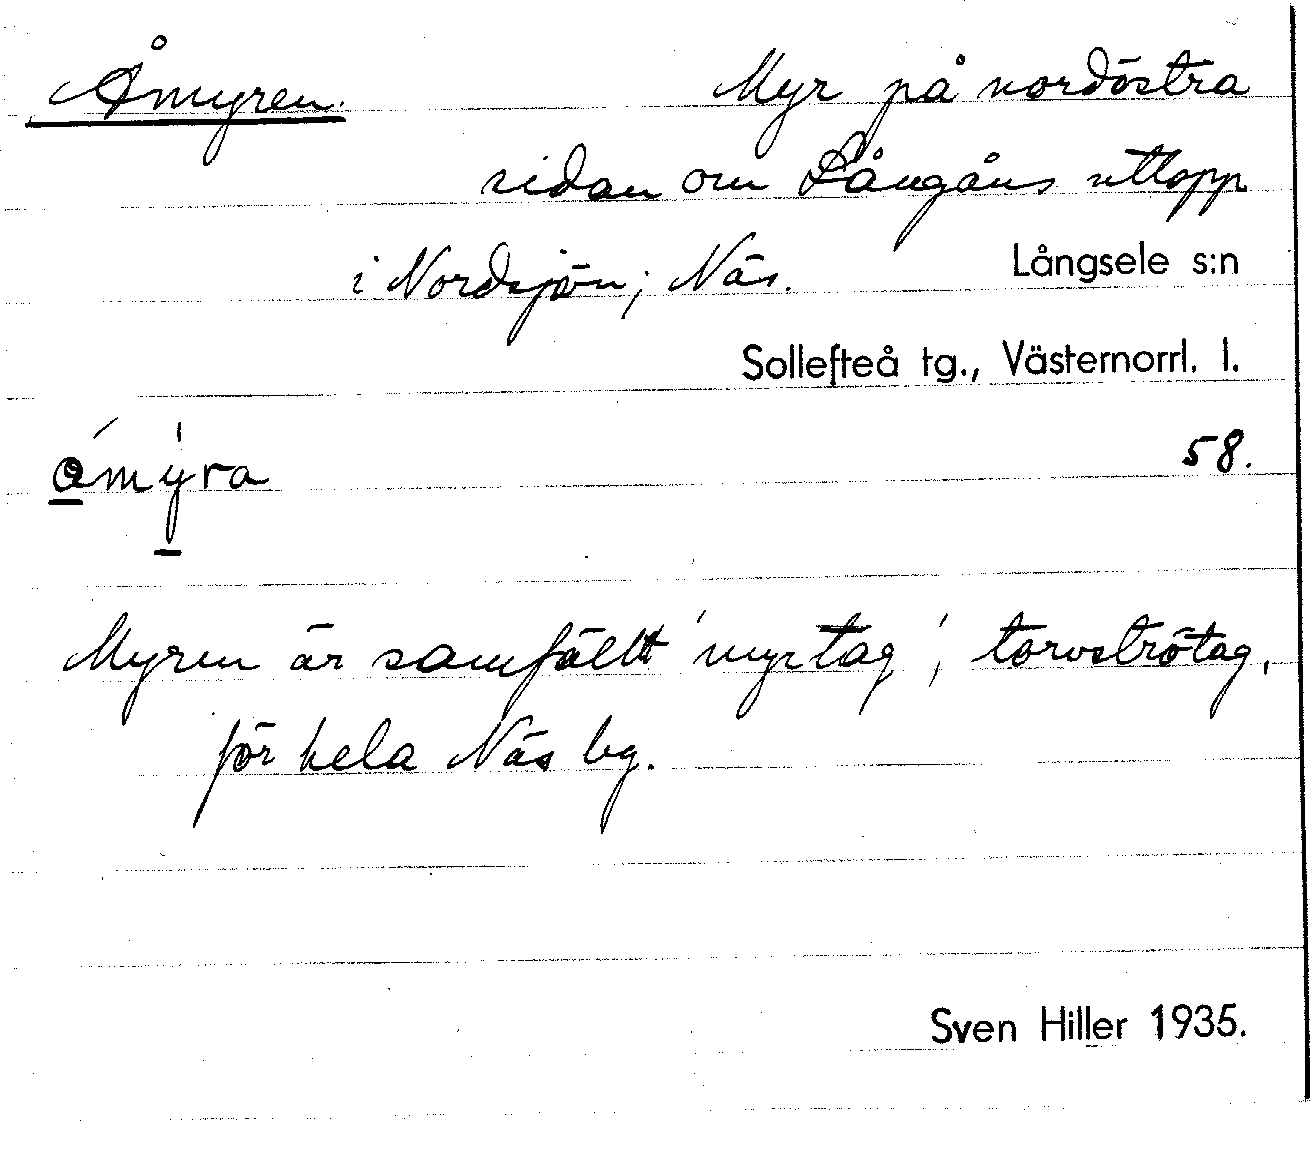 Åmyren. Myr på nordöstra
sidan om Långåns utlopp
i Nordsjön; Näs. Långsele s:n
Sollefteå tg., Västernorrl. l.
ómýra 58.
Myren är samfällt 'myrtag', torvströtag,
för hela Näs by.
Sven Hiller 1935.